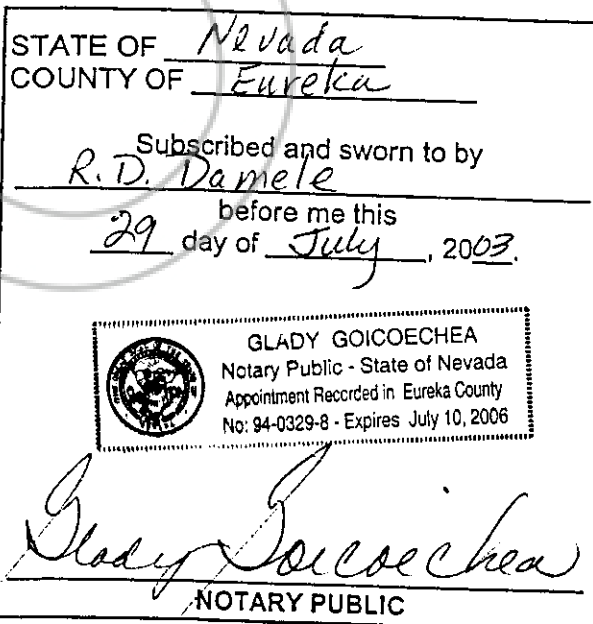 STATE OF Nevada
COUNTY OF Eureka
Subscribed and sworn to by
R.D. Damele
before me this
29 day of July, 2003.
GLADY GOICOECHEA
Notary Public - State of Nevada
Appointment Recorded in Eureka County
No: 94-0329-8 - Expires July 10, 2006
Glady Goicoechea
NOTARY PUBLIC